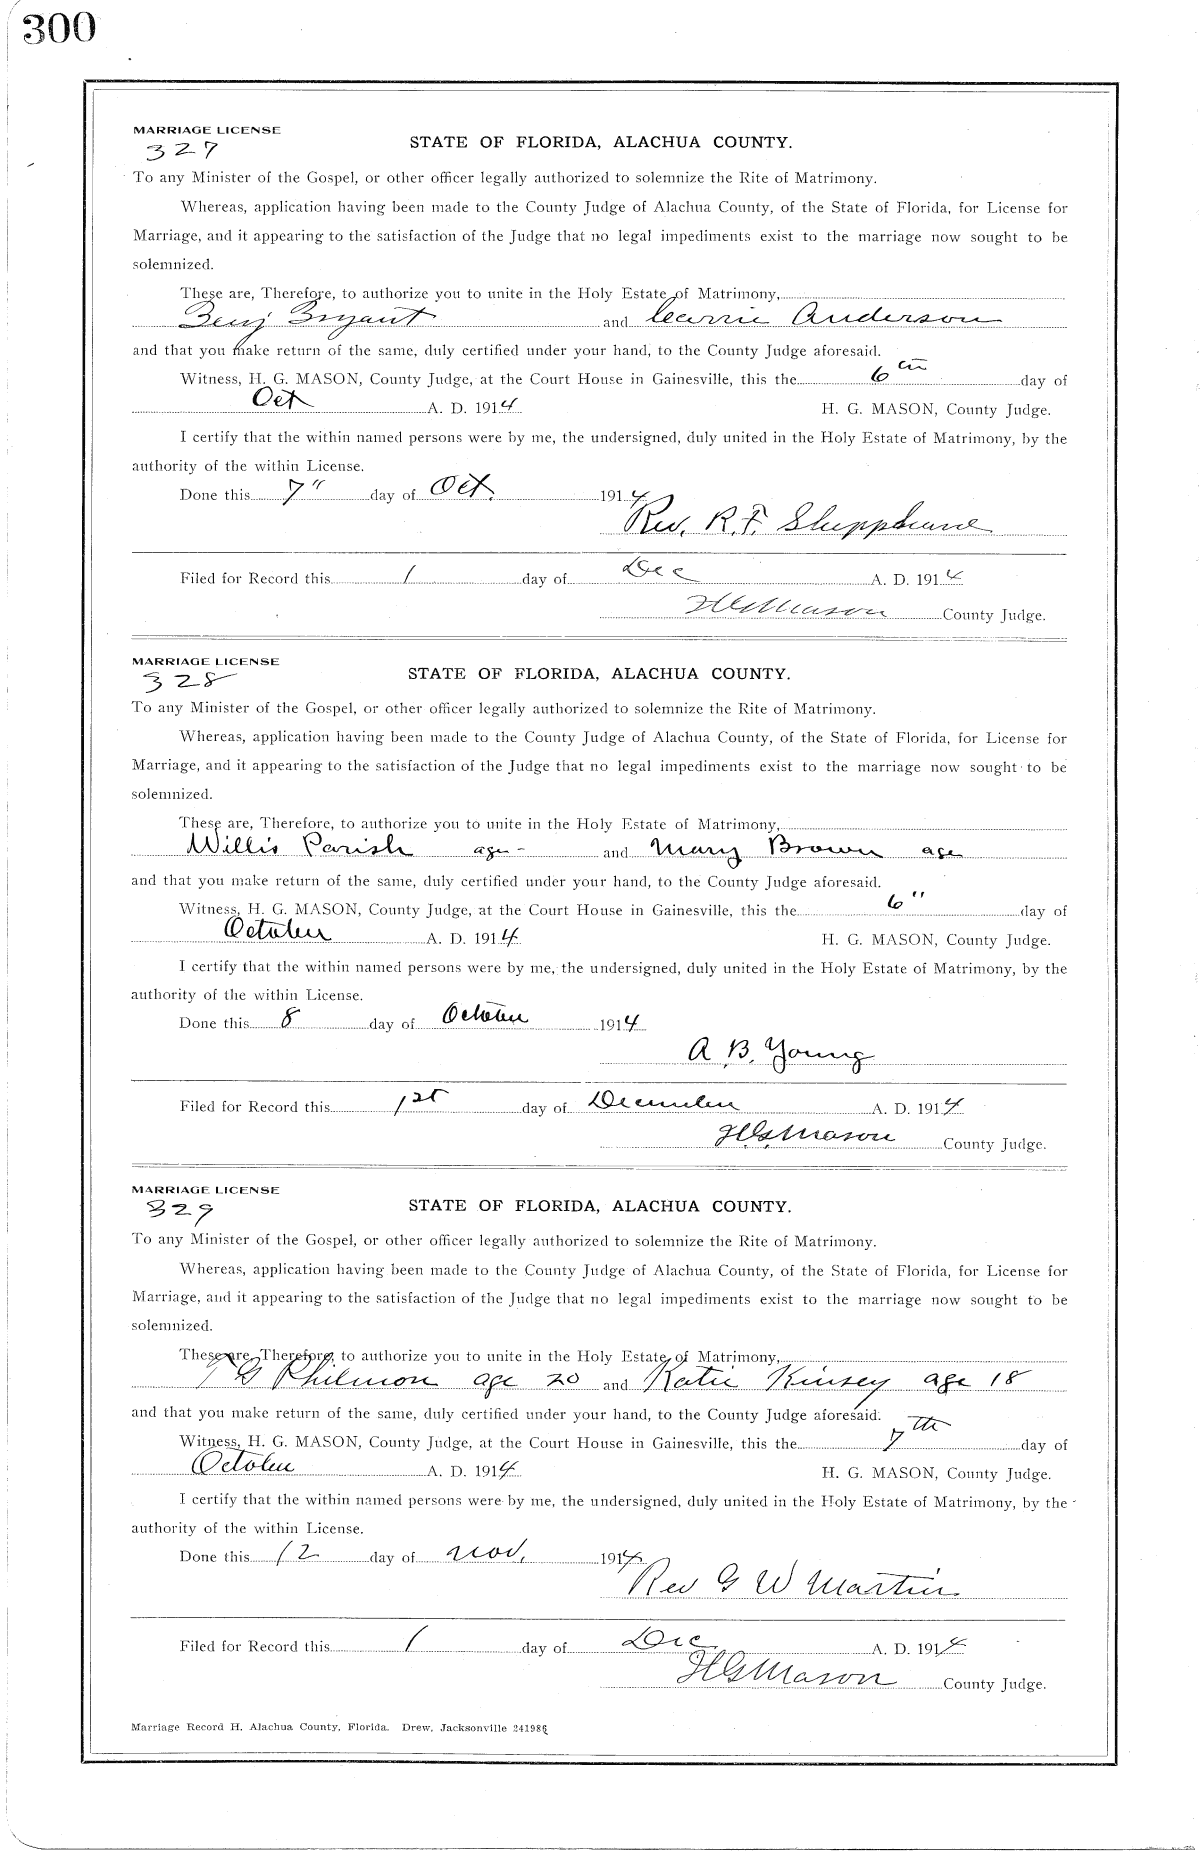 300
MARRIAGE LICENSE
327
STATE OF FLORIDA, ALACHUA COUNTY.
To any Minister of the Gospel, or other officer legally authorized to solemnize the Rite of Matrimony.
Whereas, application having been made to the County Judge of Alachua County, of the State of Florida, for License for
Marriage, and it appearing to the satisfaction of the Judge that no legal impediments exist to the marriage now sought to be
solemnized.
These are, Therefore, to authorize you to unite in the Holy Estate of Matrimony,
Benj Bryant and Carrie Anderson
and that you make return of the same, duly certified under your hand, to the County Judge aforesaid.
Witness, H. G. MASON, County Judge, at the Court House in Gainesville, this the 6th day of
Oct A. D. 1914 H. G. MASON, County Judge.
I certify that the within named persons were by me, the undersigned, duly united in the Holy Estate of Matrimony, by the
authority of the within License.
Done this 7" day of Oct. 1914
Rev. R. F.
Filed for Record this 1 day of Dec A. D. 1914
H G Mason County Judge.
MARRIAGE LICENSE
328
STATE OF FLORIDA, ALACHUA COUNTY.
To any Minister of the Gospel, or other officer legally authorized to solemnize the Rite of Matrimony.
Whereas, application having been made to the County Judge of Alachua County, of the State of Florida, for License for
Marriage, and it appearing to the satisfaction of the Judge that no legal impediments exist to the marriage now sought to be
solemnized.
These are, Therefore, to authorize you to unite in the Holy Estate of Matrimony,
Willis Parish age - and Mary Brown age
and that you make return of the same, duly certified under your hand, to the County Judge aforesaid.
Witness, H. G. MASON, County Judge, at the Court House in Gainesville, this the 6" day of
October A. D. 1914 H. G. MASON, County Judge.
I certify that the within named persons were by me, the undersigned, duly united in the Holy Estate of Matrimony, by the
authority of the within License.
Done this 8 day of October 1914
A. B. Young
Filed for Record this 1st day of December A. D. 1914
H. G. Mason County Judge.
MARRIAGE LICENSE
329
STATE OF FLORIDA, ALACHUA COUNTY.
To any Minister of the Gospel, or other officer legally authorized to solemnize the Rite of Matrimony.
Whereas, application having been made to the County Judge of Alachua County, of the State of Florida, for License for
Marriage, and it appearing to the satisfaction of the Judge that no legal impediments exist to the marriage now sought to be
solemnized.
These are, Therefore, to authorize you to unite in the Holy Estate of Matrimony,
T G Philmon age 20 and Katie Kinsey age 18
and that you make return of the same, duly certified under your hand, to the County Judge aforesaid.
Witness, H. G. MASON, County Judge, at the Court House in Gainesville, this the 7th day of
October A. D. 1914 H. G. MASON, County Judge.
I certify that the within named persons were by me, the undersigned, duly united in the Holy Estate of Matrimony, by the
authority of the within License.
Done this 12 day of Nov. 1914
Rev G W Martin
Filed for Record this 1 day of Dec A. D. 1914
H G Mason County Judge.
Marriage Record H, Alachua County, Florida. Drew, Jacksonville 241986